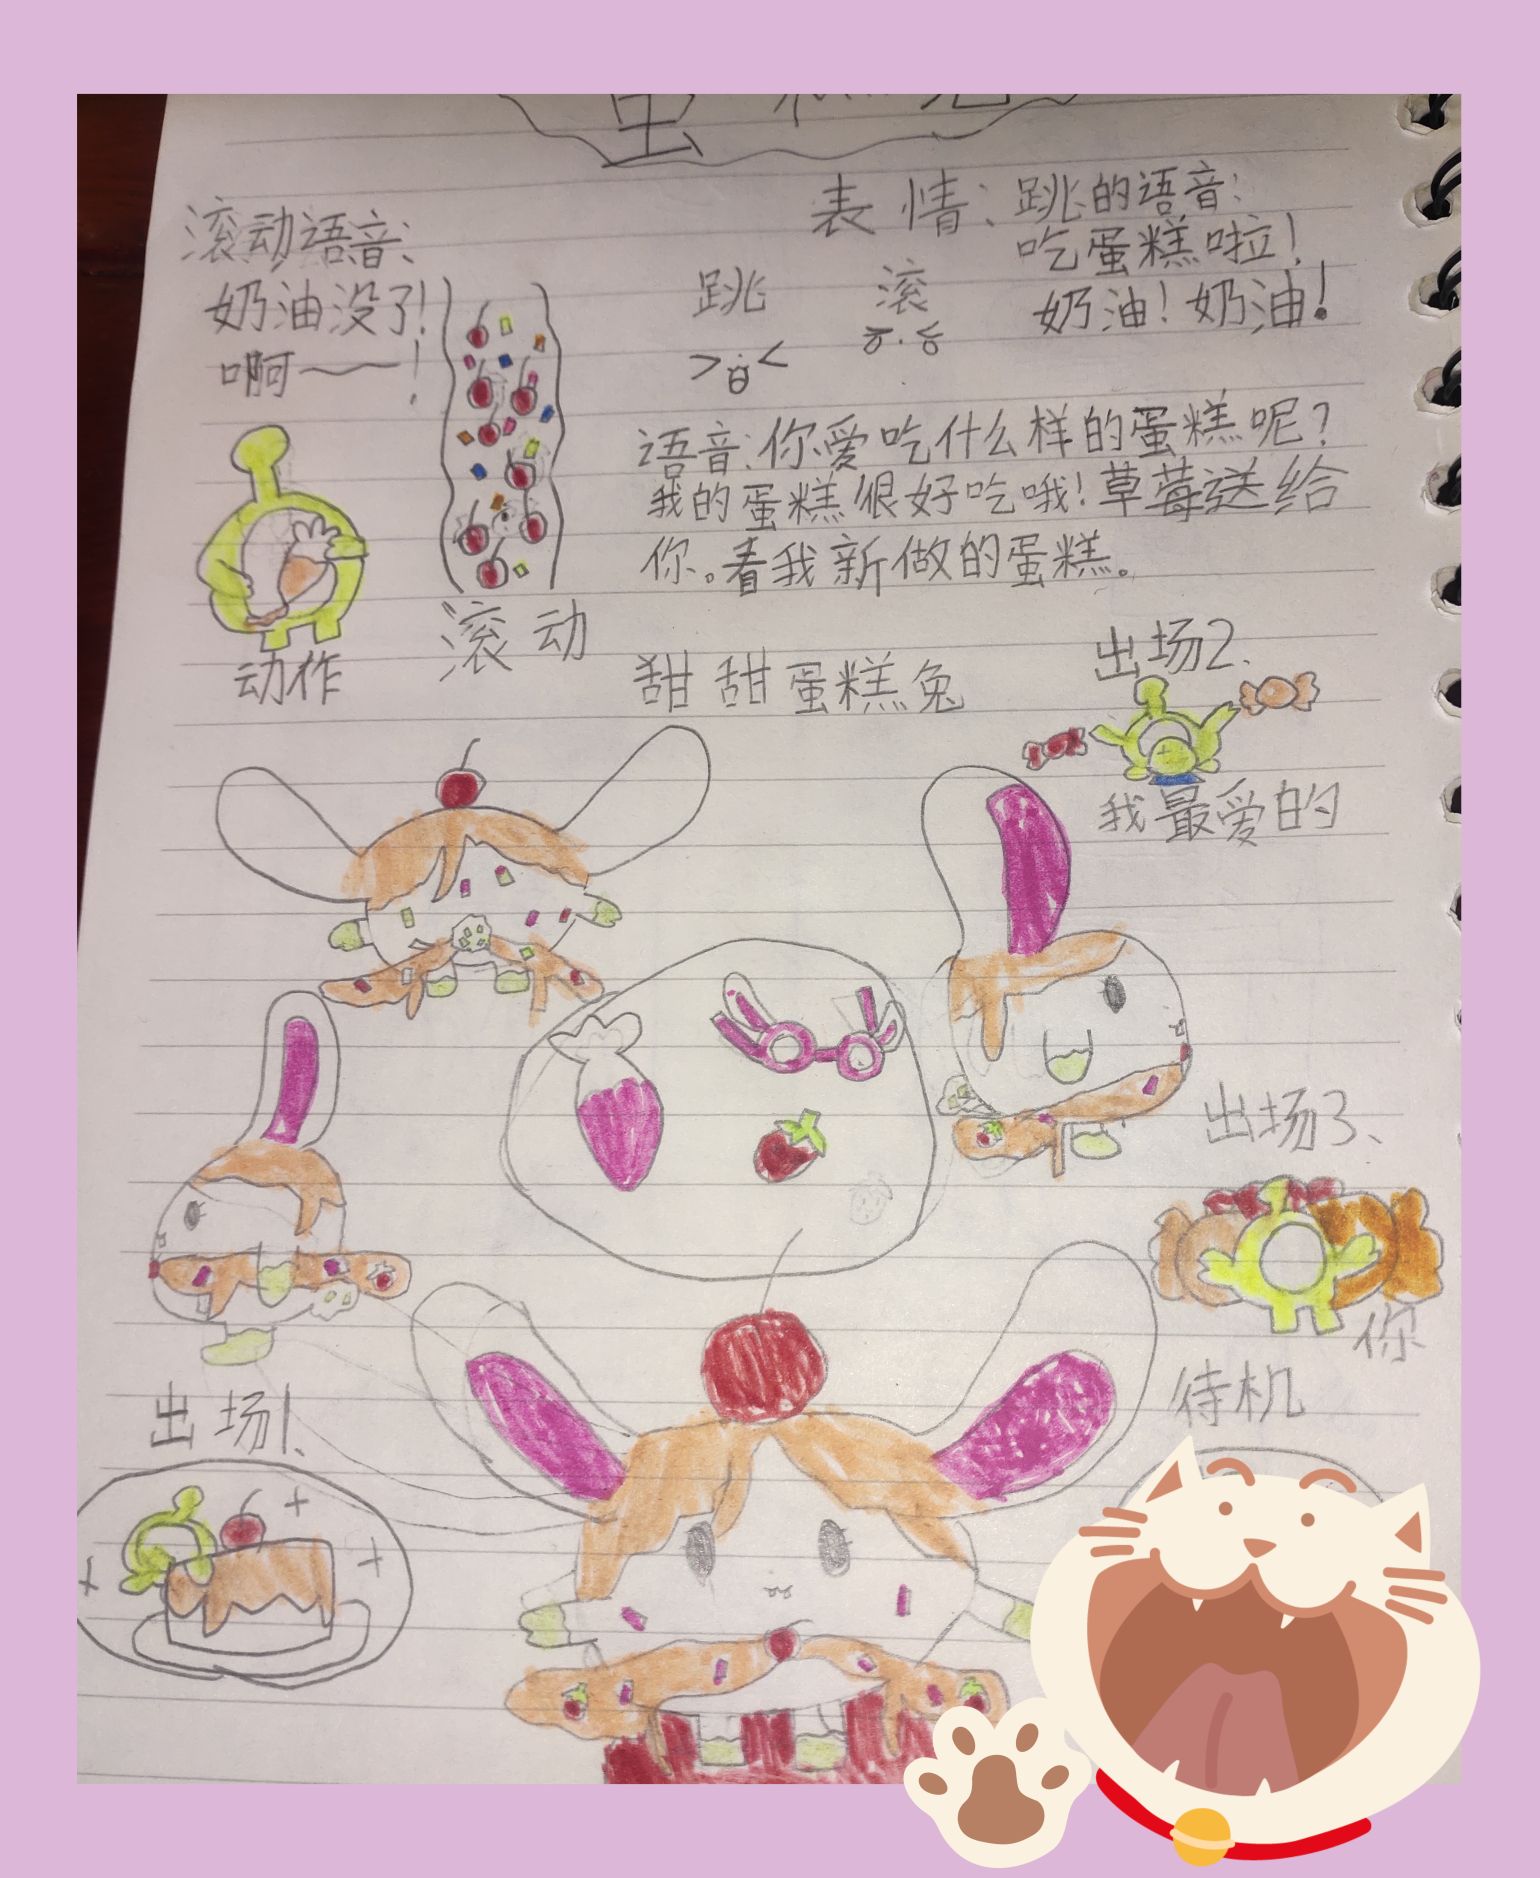 滚动语音:
奶油没了!
啊——!
动作
滚动
表情:
跳
滚
跳的语音:
吃蛋糕啦!
奶油!奶油!
语音:你爱吃什么样的蛋糕呢?
我的蛋糕很好吃哦!草莓送给
你。看我新做的蛋糕。
甜甜蛋糕兔
出场2、
我最爱的
出场3、
你
待机
出场1、